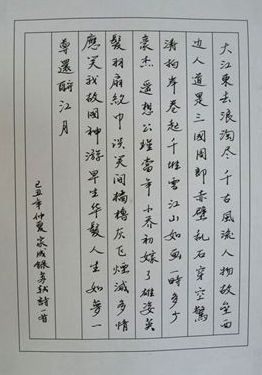 大江東去浪淘尽千古風流人物故垒西
边人道是三國周郎赤壁乱石穿空驚
涛拍岸卷起千堆雪江山如画一時多少
豪杰遥想公瑾當年小乔初嫁了雄姿英
髮羽扇綸巾谈笑间檣櫓灰飞煙滅多情
應笑我故國神游早生华髮人生如夢一
尊還酹江月
己丑年仲夏家成錄苏轼詩一首